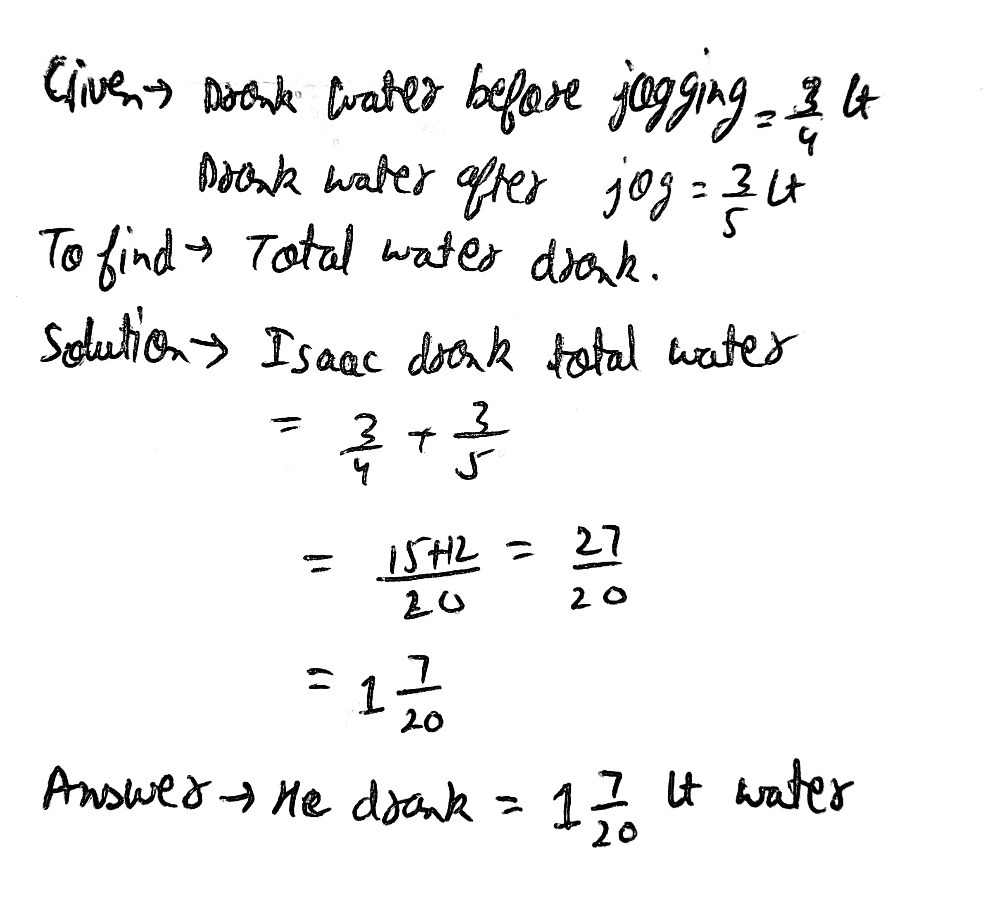 Given → Drank water before jogging = 3/4 lt
Drank water after jog = 3/5 lt
To find → Total water drank.
Solution → Isaac drank total water
= 3/4 + 3/5
= 15+12/20 = 27/20
= 1 7/20
Answer → He drank = 1 7/20 lt water